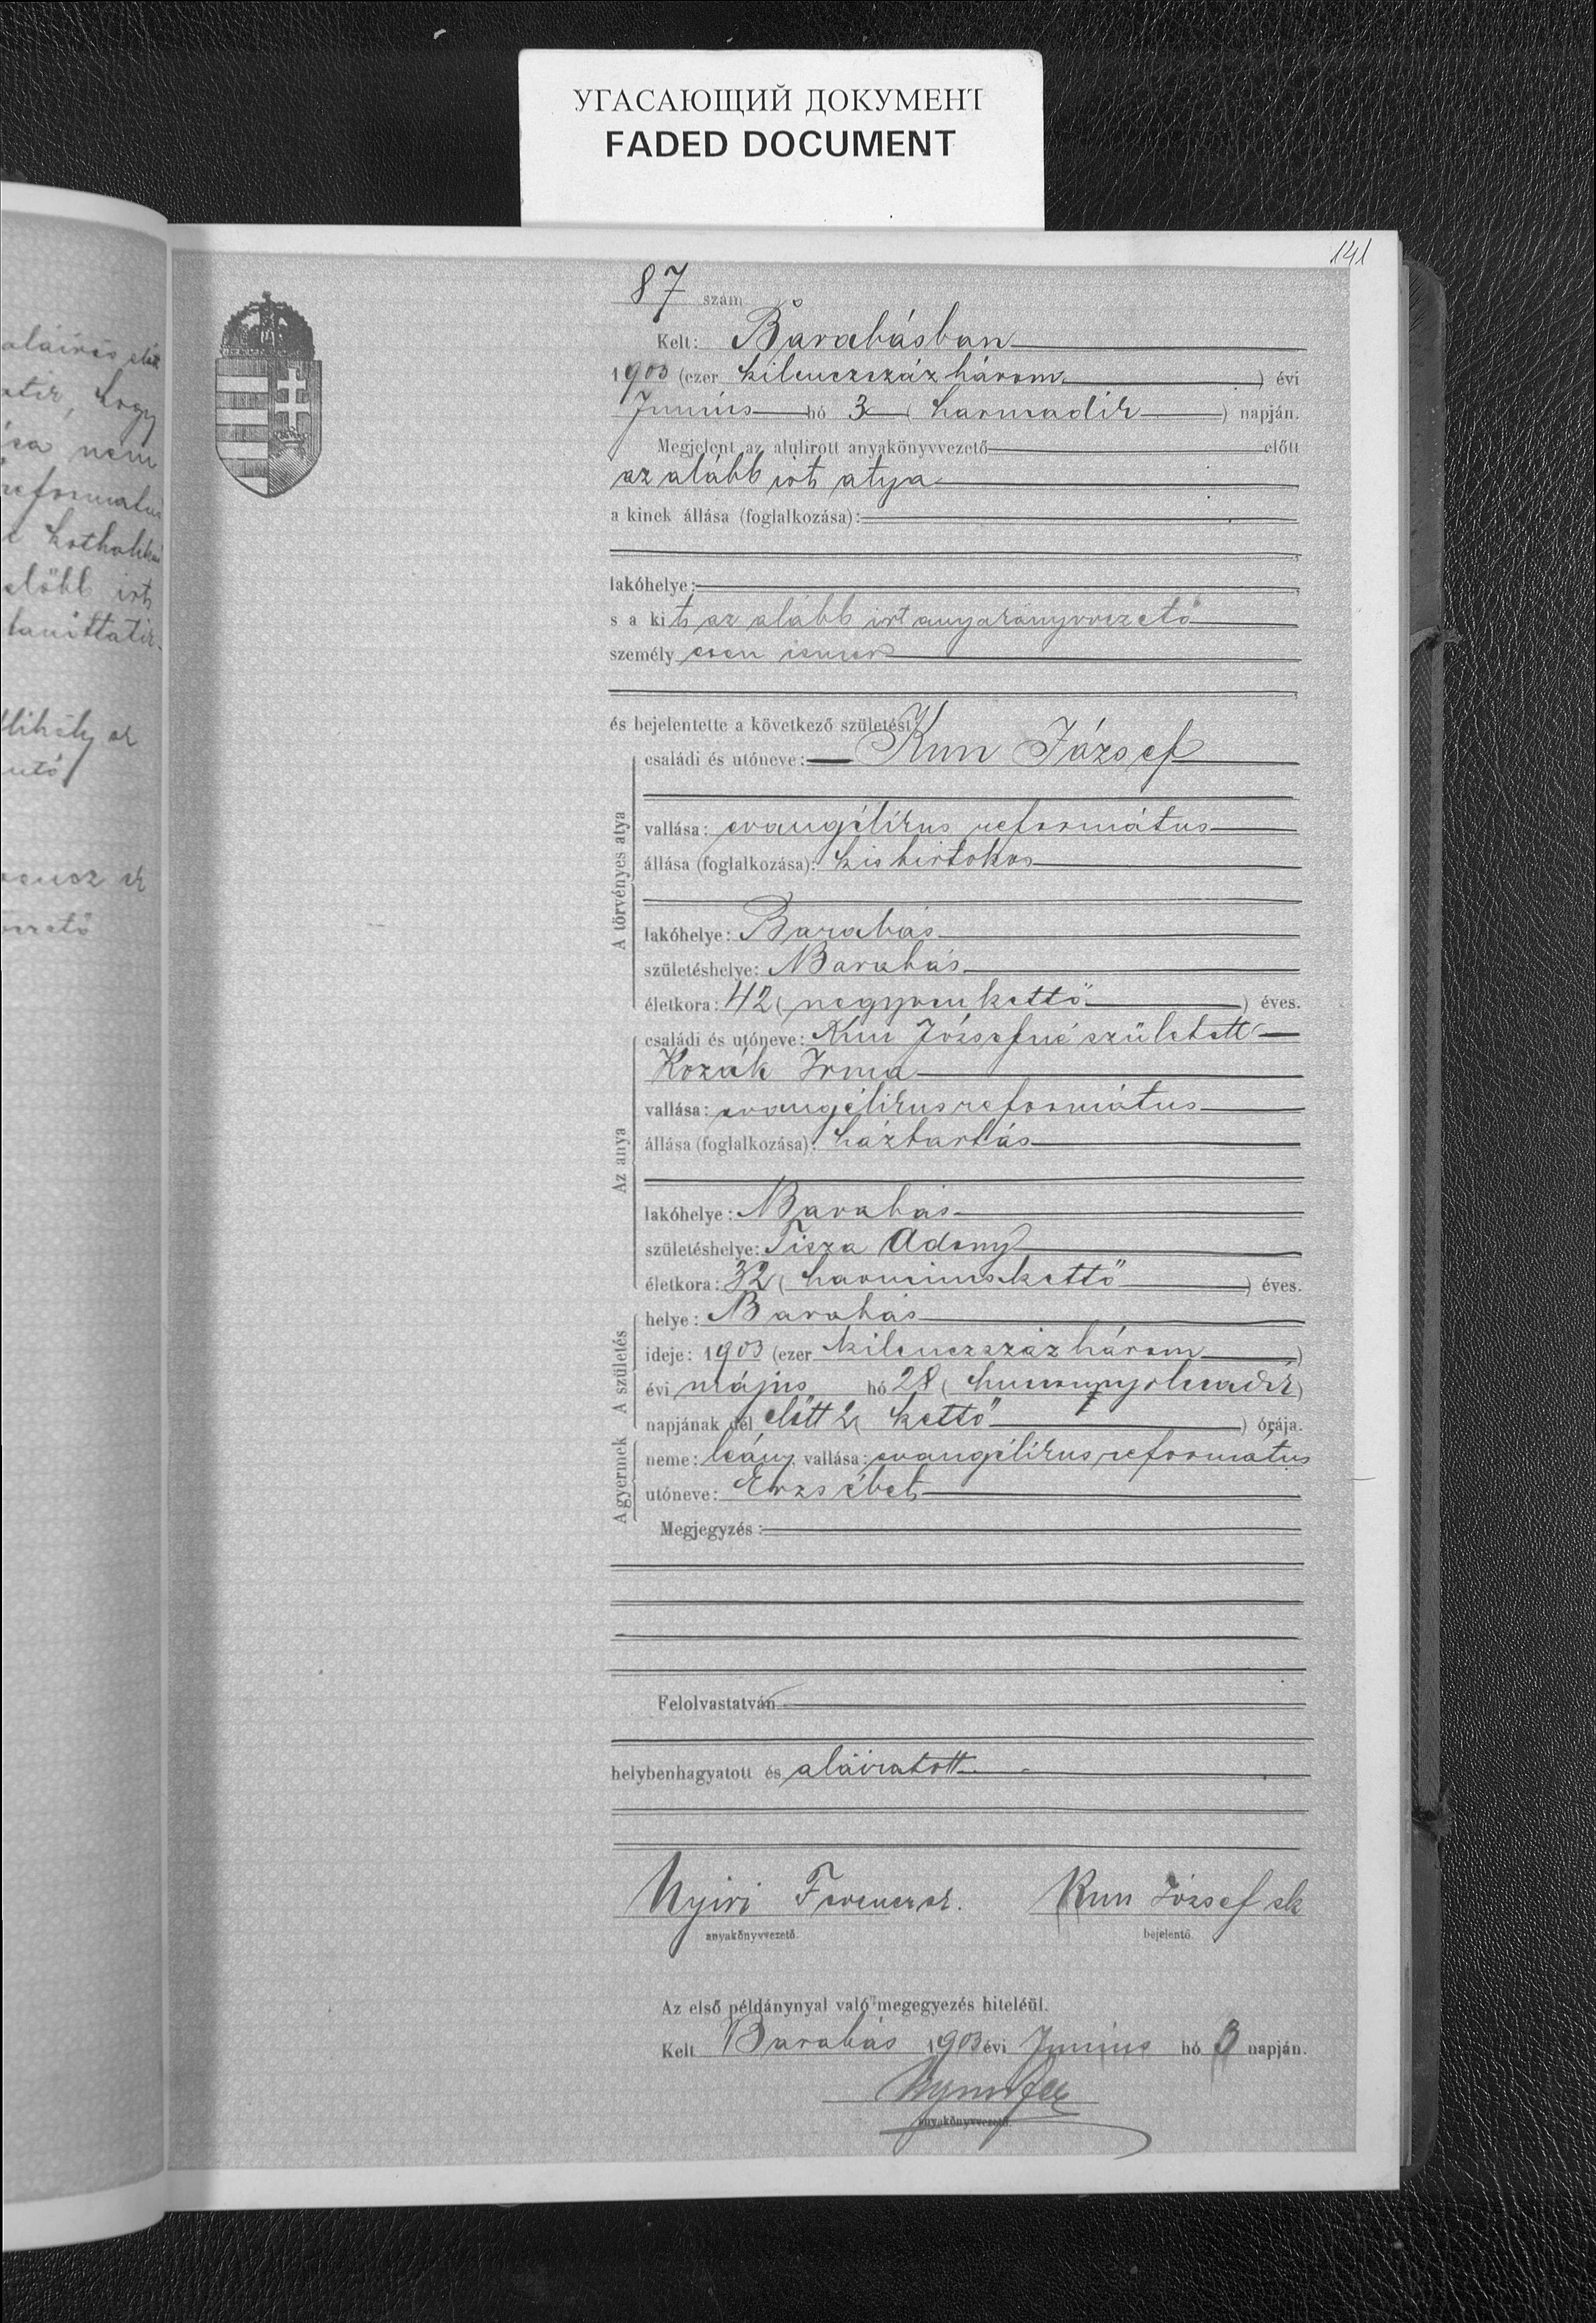 УГАСАЮЩИЙ ДОКУМЕНТ
FADED DOCUMENT
141
87 szám
Kelt: Barabásban
1903 (ezer kilenczszáz három) évi
Junius hó 3 (harmadik) napján.
Megjelent az alulirott anyakönyvvezető előtt
az alább irt atya
a kinek állása (foglalkozása):
lakóhelye:
s a kit az alább irt anyakönyvvezető
személyesen ismer
és bejelentette a következő születést:
A törvényes atya
családi és utóneve: Kun József
vallása: evangélikus református
állása (foglalkozása): kisbirtokos
lakóhelye: Barabás
születéshelye: Barabás
életkora: 42 (negyvenkettő) éves.
Az anya
családi és utóneve: Kun Józsefné született
Kozák Irma
vallása: evangélikus református
állása (foglalkozása): háztartás
lakóhelye: Barabás
születéshelye: Tisza Adony
életkora: 32 (harminczkettő) éves.
A születés
helye: Barabás
ideje: 1903 (ezer kilenczszáz három)
évi május hó 28 (huszonnyolczadik)
napjának dél előtt 2 (kettő) órája.
A gyermek
neme: leány, vallása: evangélikus református
utóneve: Erzsébet
Megjegyzés:
Felolvastatván
helybenhagyatott és aláiratott
Nyiri Ferencz sk. Kun József sk
anyakönyvvezető. bejelentő.
Az első példánynyal való megegyezés hiteléül.
Kelt Barabás 1903 évi Junius hó 3 napján.
anyakönyvvezető.
aláirás előtt
hogy
nem
református
előbb irt
Mihály sk